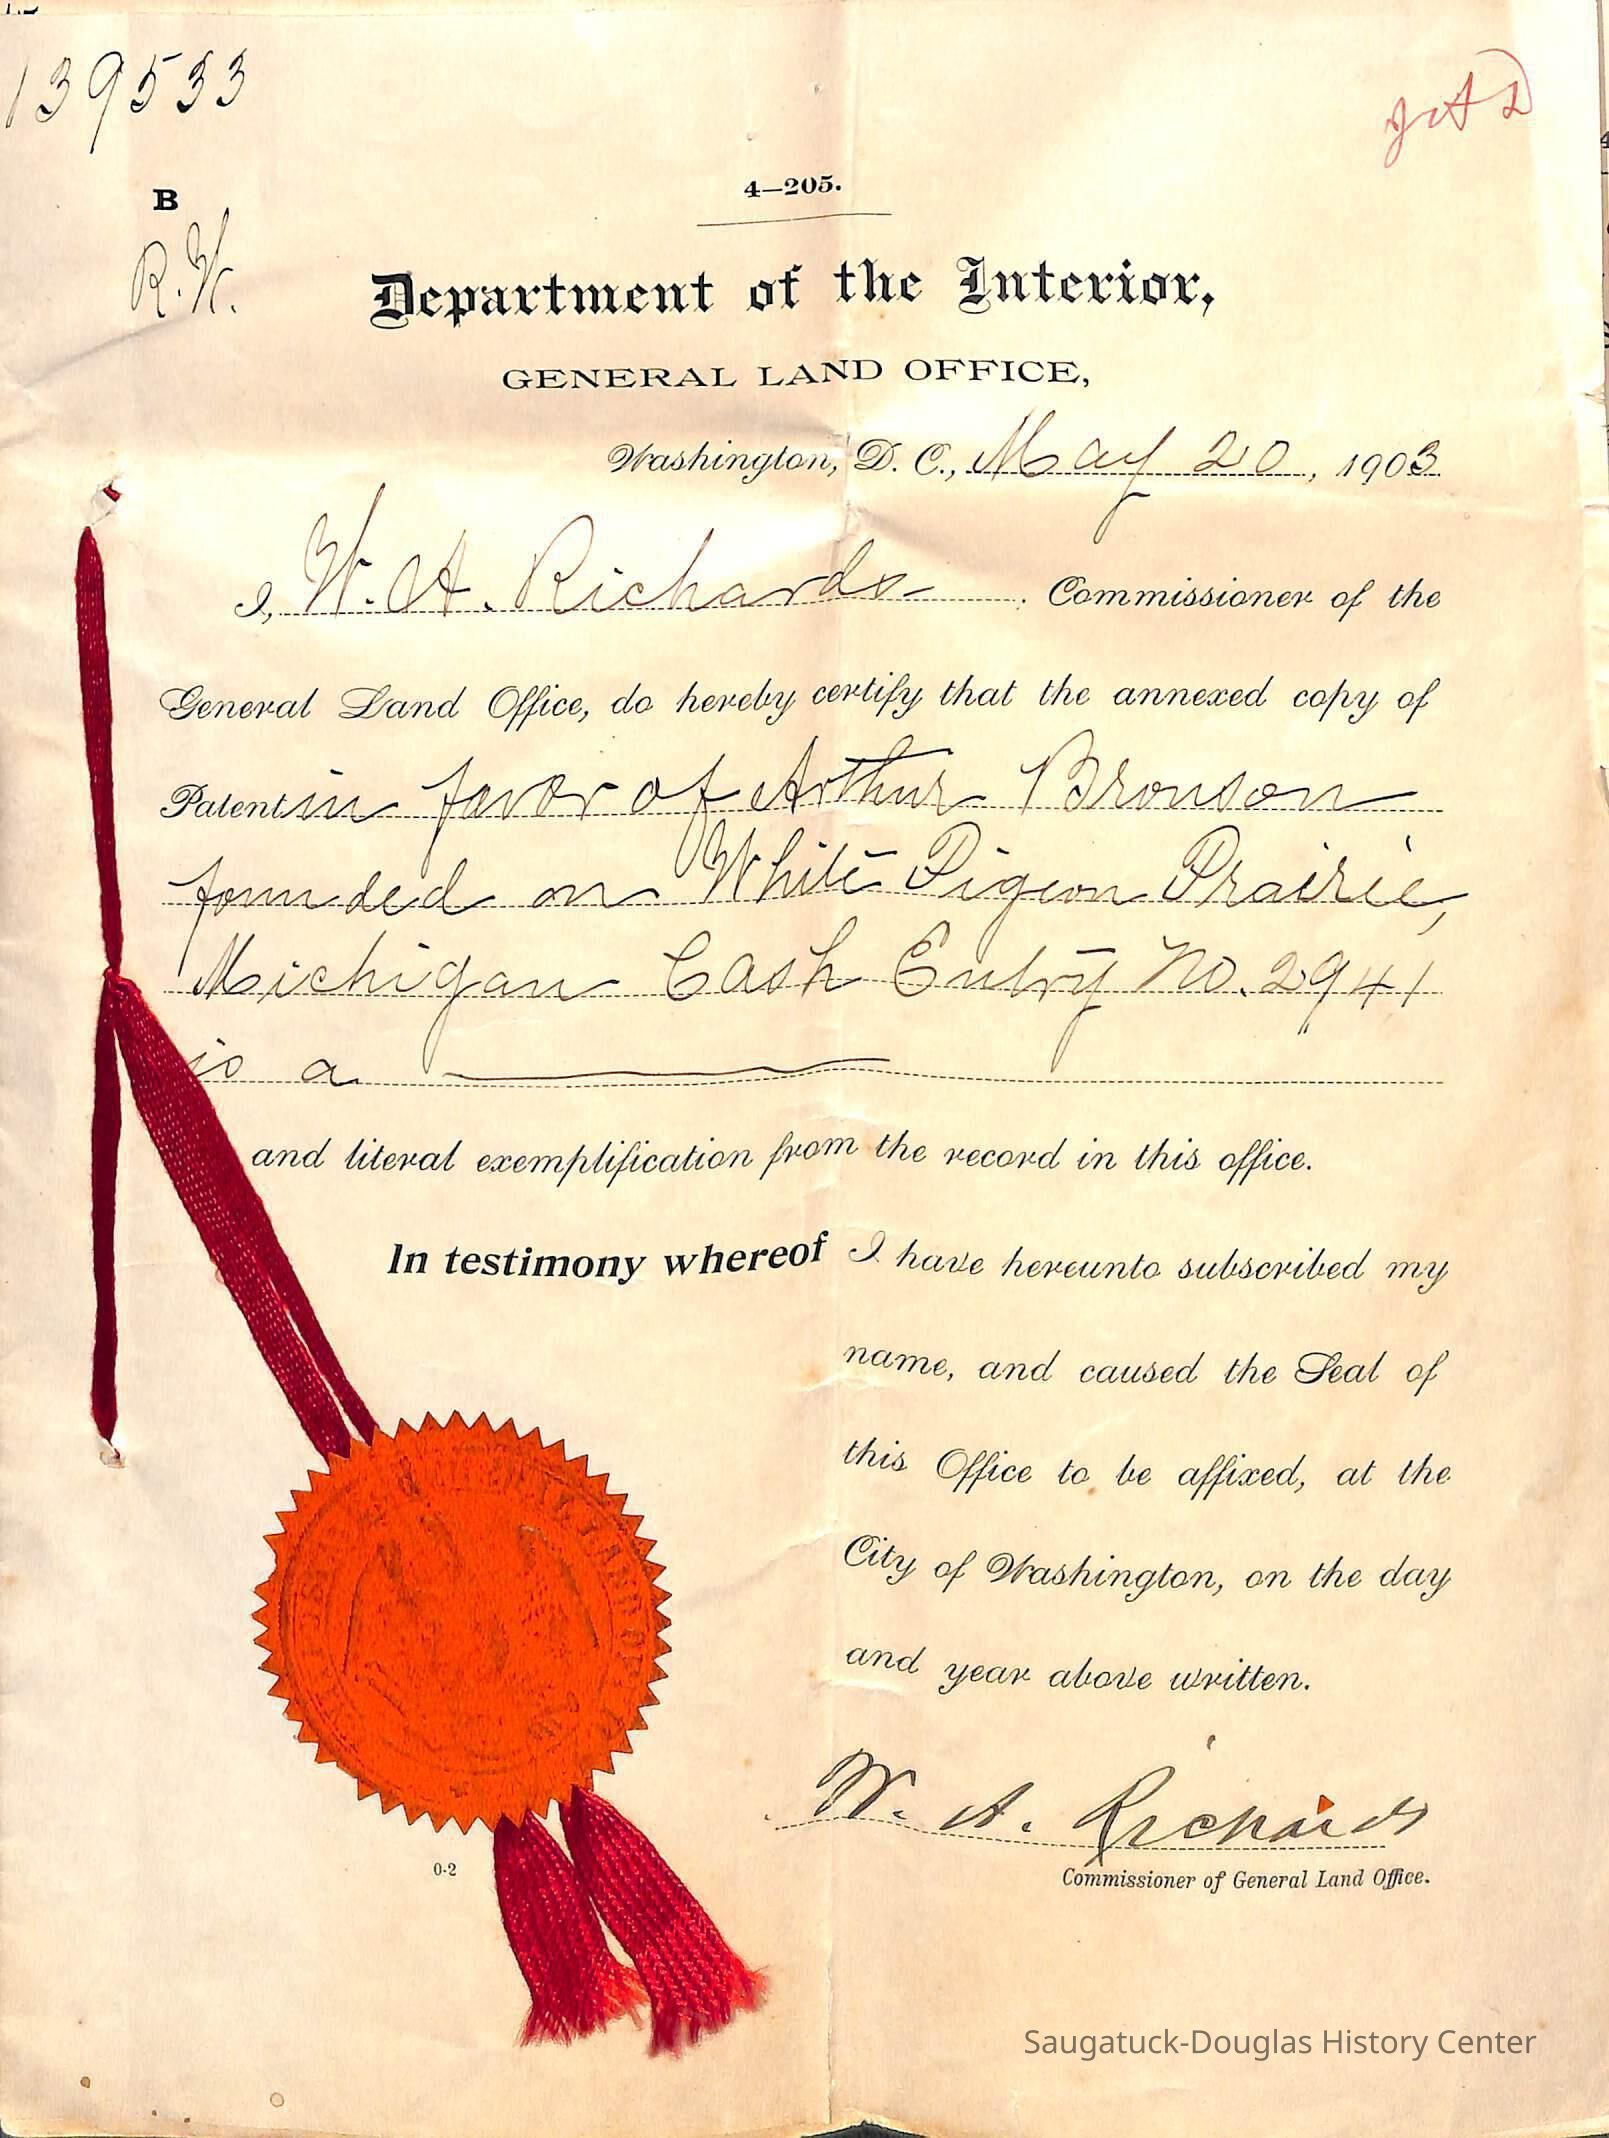 139533
B
4—205.
R.W.
Department of the Interior,
GENERAL LAND OFFICE,
Washington, D. C., May 20, 1903.
I, W. A. Richards Commissioner of the
General Land Office, do hereby certify that the annexed copy of
Patent in favor of Arthur Bronson
founded on White Pigeon Prairie,
Michigan Cash Entry No. 2941
is a
and literal exemplification from the record in this office.
In testimony whereof I have hereunto subscribed my
name, and caused the Seal of
this Office to be affixed, at the
City of Washington, on the day
and year above written.
W. A. Richards
Commissioner of General Land Office.
0-2
Saugatuck-Douglas History Center